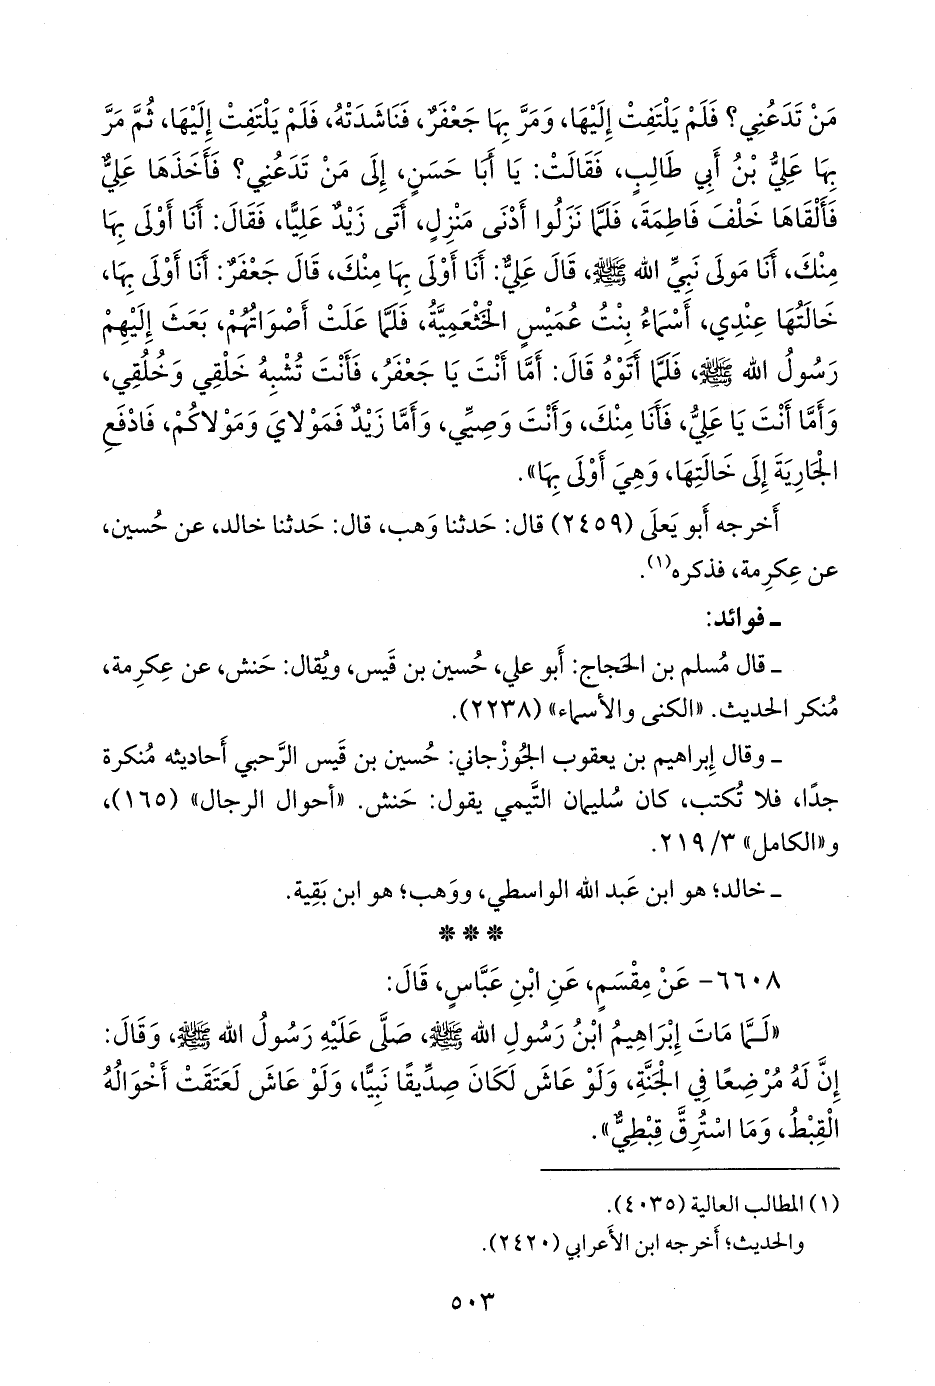 مَنْ تَدَعُنِي؟ فَلَمْ يَلْتَفِتْ إِلَيْهَا، وَمَرَّ بِهَا جَعْفَرٌ، فَنَاشَدَتْهُ، فَلَمْ يَلْتَفِتْ إِلَيْهَا، ثُمَّ مَرَّ
بِهَا عَلِيُّ بْنُ أَبِي طَالِبٍ، فَقَالَتْ: يَا أَبَا حَسَنٍ، إِلَى مَنْ تَدَعُنِي؟ فَأَخَذَهَا عَلِيٌّ
فَأَلْقَاهَا خَلْفَ فَاطِمَةَ، فَلَمَّا نَزَلُوا أَدْنَى مَنْزِلٍ، أَتَى زَيْدٌ عَلِيًّا، فَقَالَ: أَنَا أَوْلَى بِهَا
مِنْكَ، أَنَا مَولَى نَبِيِّ الله ﷺ، قَالَ عَلِيٌّ: أَنَا أَوْلَى بِهَا مِنْكَ، قَالَ جَعْفَرٌ: أَنَا أَوْلَى بِهَا،
خَالَتُهَا عِنْدِي، أَسْمَاءُ بِنْتُ عُمَيْسٍ الْخَثْعَمِيَّةُ، فَلَمَّا عَلَتْ أَصْوَاتُهُمْ، بَعَثَ إِلَيْهِمْ
رَسُولُ الله ﷺ، فَلَمَّا أَتَوْهُ قَالَ: أَمَّا أَنْتَ يَا جَعْفَرُ، فَأَنْتَ تُشْبِهُ خَلْقِي وَخُلُقِي،
وَأَمَّا أَنْتَ يَا عَلِيُّ، فَأَنَا مِنْكَ، وَأَنْتَ وَصِيِّي، وَأَمَّا زَيْدٌ فَمَوْلَايَ وَمَوْلَاكُمْ، فَادْفَعِ
الْجَارِيَةَ إِلَى خَالَتِهَا، وَهِيَ أَوْلَى بِهَا».
أَخرجه أَبو يَعلَى (٢٤٥٩) قال: حَدثنا وَهب، قال: حَدثنا خالد، عن حُسين،
عن عِكرِمة، فذكره(١).
ـ فوائد:
ـ قال مُسلم بن الحَجاج: أَبو علي، حُسين بن قَيس، ويُقال: حَنش، عن عِكرِمة،
مُنكر الحديث. «الكنى والأسماء» (٢٢٣٨).
ـ وقال إِبراهيم بن يعقوب الجُوزْجاني: حُسين بن قَيس الرَّحبي أَحاديثه مُنكرة
جدًا، فلا تُكتب، كان سُليمان التَّيمي يقول: حَنش. «أحوال الرجال» (١٦٥)،
و«الكامل» ٣/ ٢١٩.
ـ خالد؛ هو ابن عَبد الله الواسطي، ووَهب؛ هو ابن بَقِية.
* * *
٦٦٠٨- عَنْ مِقْسَمٍ، عَنِ ابْنِ عَبَّاسٍ، قَالَ:
«لَمَّا مَاتَ إِبْرَاهِيمُ ابْنُ رَسُولِ الله ﷺ، صَلَّى عَلَيْهِ رَسُولُ الله ﷺ، وَقَالَ:
إِنَّ لَهُ مُرْضِعًا فِي الْجَنَّةِ، وَلَوْ عَاشَ لَكَانَ صِدِّيقًا نَبِيًّا، وَلَوْ عَاشَ لَعَتَقَتْ أَخْوَالُهُ
الْقِبْطُ، وَمَا اسْتُرِقَّ قِبْطِيٌّ».
(١) المطالب العالية (٤٠٣٥).
والحديث؛ أخرجه ابن الأَعرابي (٢٤٢٠).
٥٠٣